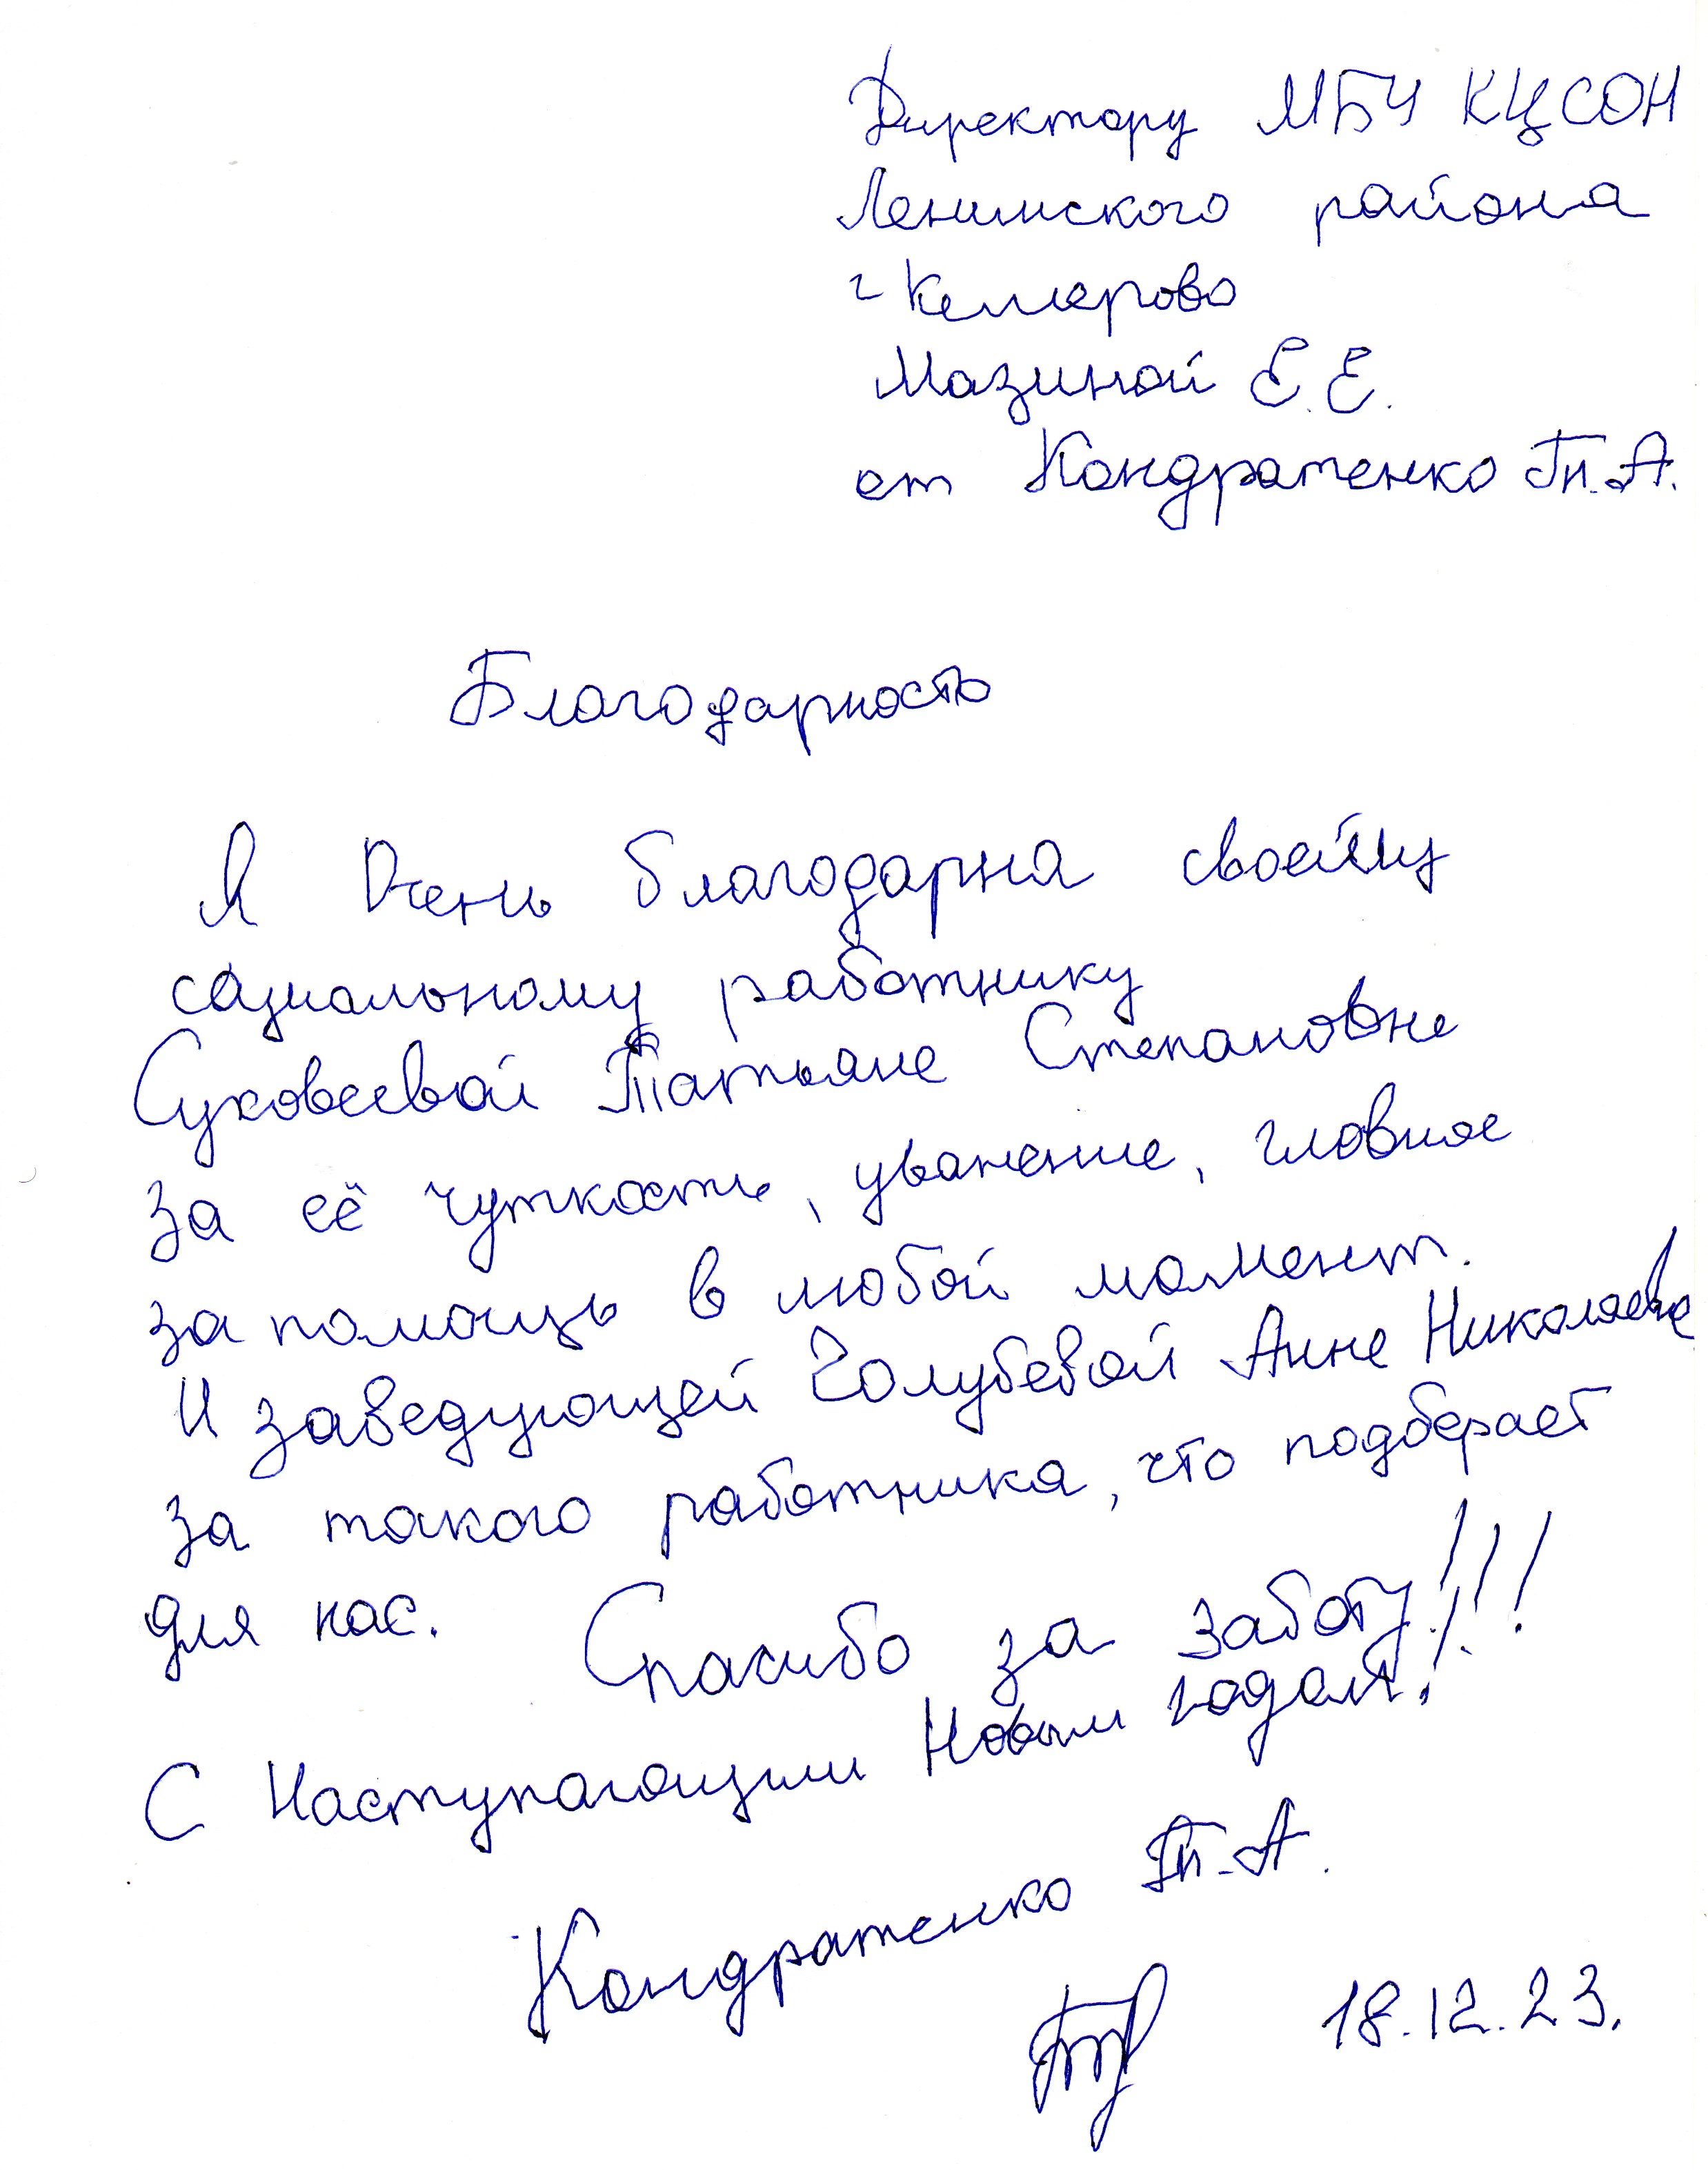 Директору МБУ КЦСОН
Ленинского района
г Кемерово
Мазиной Е.Е.
от Кондратенко Т.А.
Благодарность
Я Очень благодарна своему
социальному работнику
Суховеевой Татьяне Степановне
за её чуткость, уважение, главное
за помощь в любой момент.
И заведующей Голубевой Анне Николаевне
за такого работника, что подберает
для нас. Спасибо за заботу!!!
С Наступающим Новым годом!
Кондратенко Т.А.
18.12.23.